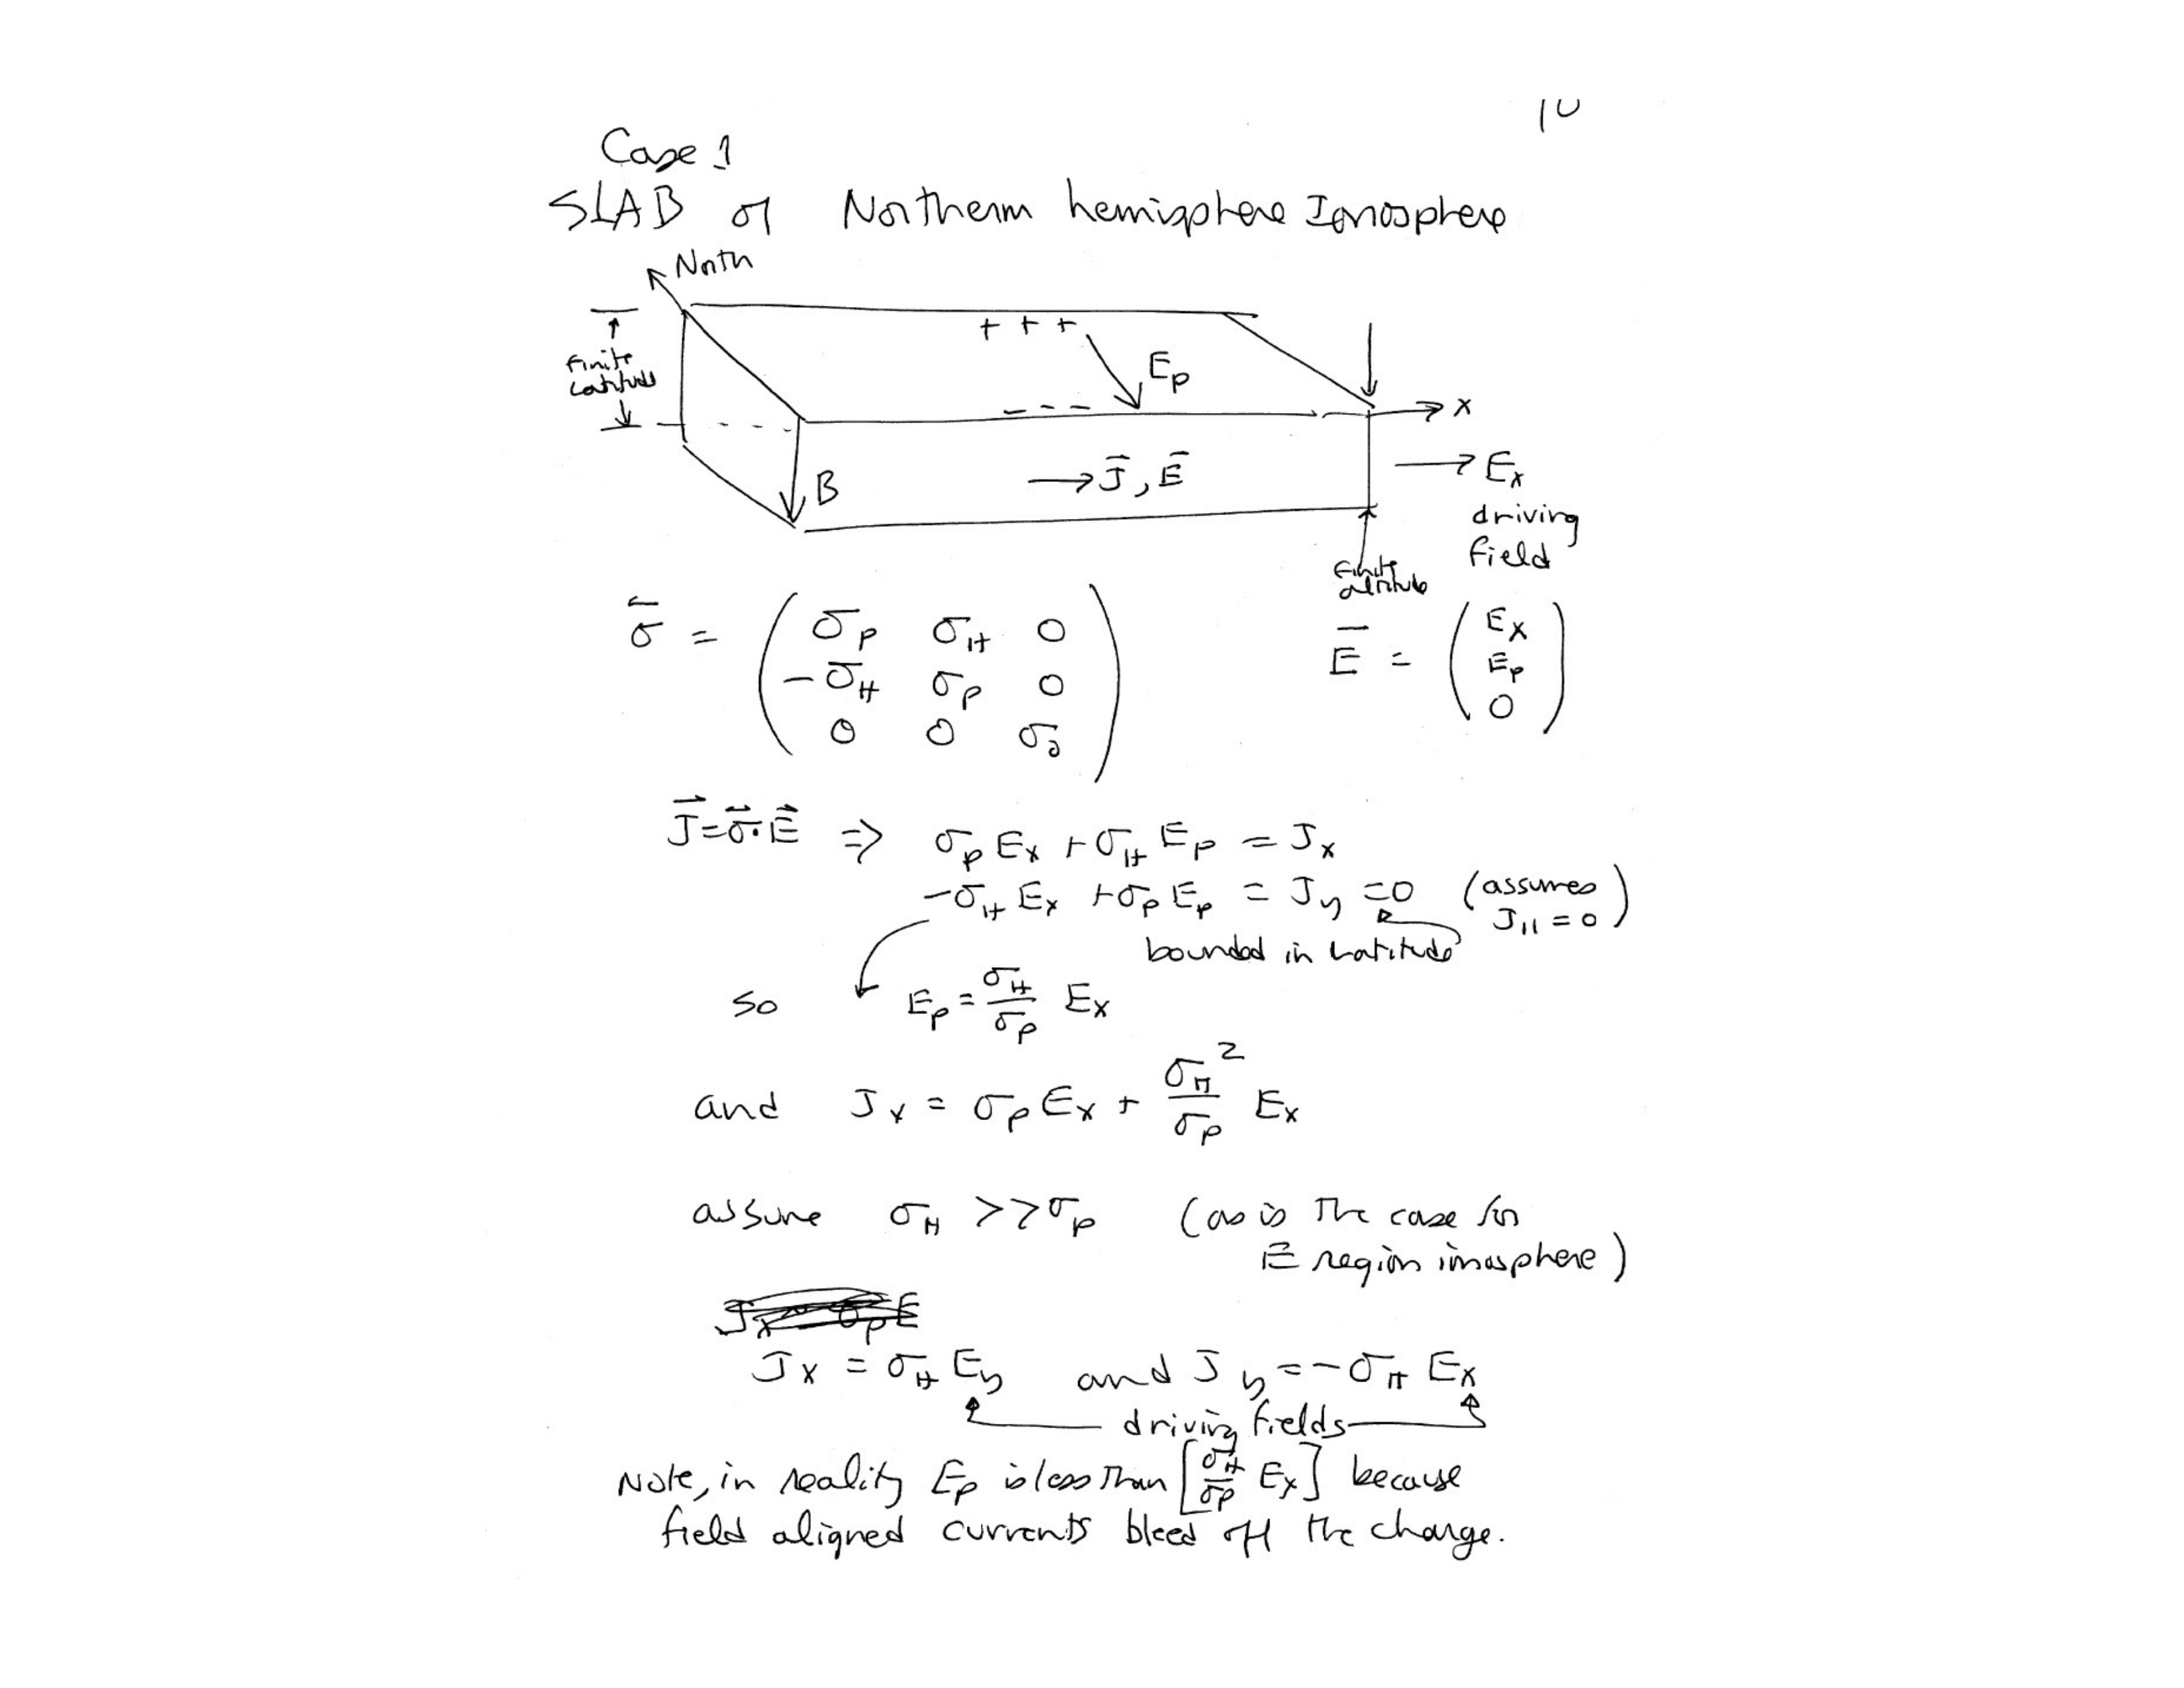 10
Case 1
SLAB of Northern hemisphere Ionosphere
North
+ + +
Finite
Latitude
E_p
- - -
x
B
→ J⃗, E⃗
→ E_x
driving
field
Finite
altitude
σ̄ = ( σ_P σ_H 0
-σ_H σ_P 0
0 0 σ_0 )
E̅ = ( E_x
E_p
0 )
J⃗ = σ⃗·E⃗ ⇒ σ_p E_x + σ_H E_p = J_x
-σ_H E_x + σ_p E_p = J_y = 0 (assumes J_∥ = 0)
bounded in Latitude
so E_p = σ_H/σ_p E_x
and J_x = σ_p E_x + σ_H²/σ_p E_x
assume σ_H >> σ_p (as is the case for
E region ionosphere)
J_x = σ_H E_y and J_y = -σ_H E_x
driving fields
Note, in reality E_p is less than [σ_H/σ_p E_x] because
field aligned currents bleed off the charge.